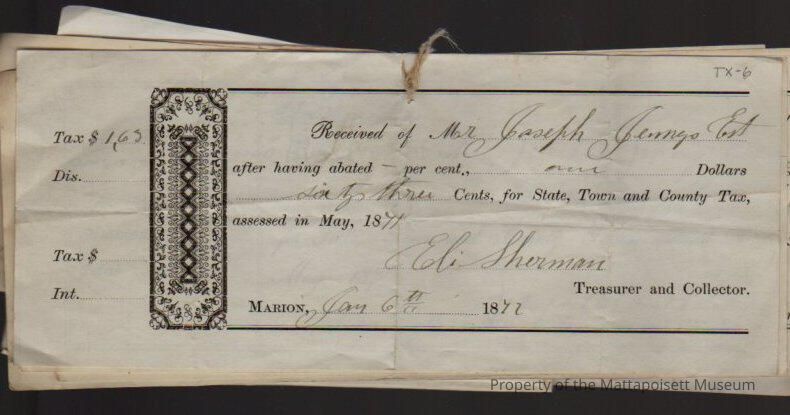 TX-6
Tax $ 1,63
Dis.
Tax $
Int.
Received of Mr Joseph Jennys Est
after having abated — per cent., one Dollars
sixty three Cents, for State, Town and County Tax,
assessed in May, 1871
Eli Sherman
Treasurer and Collector.
MARION, Jan 6th 1872
Property of the Mattapoisett Museum